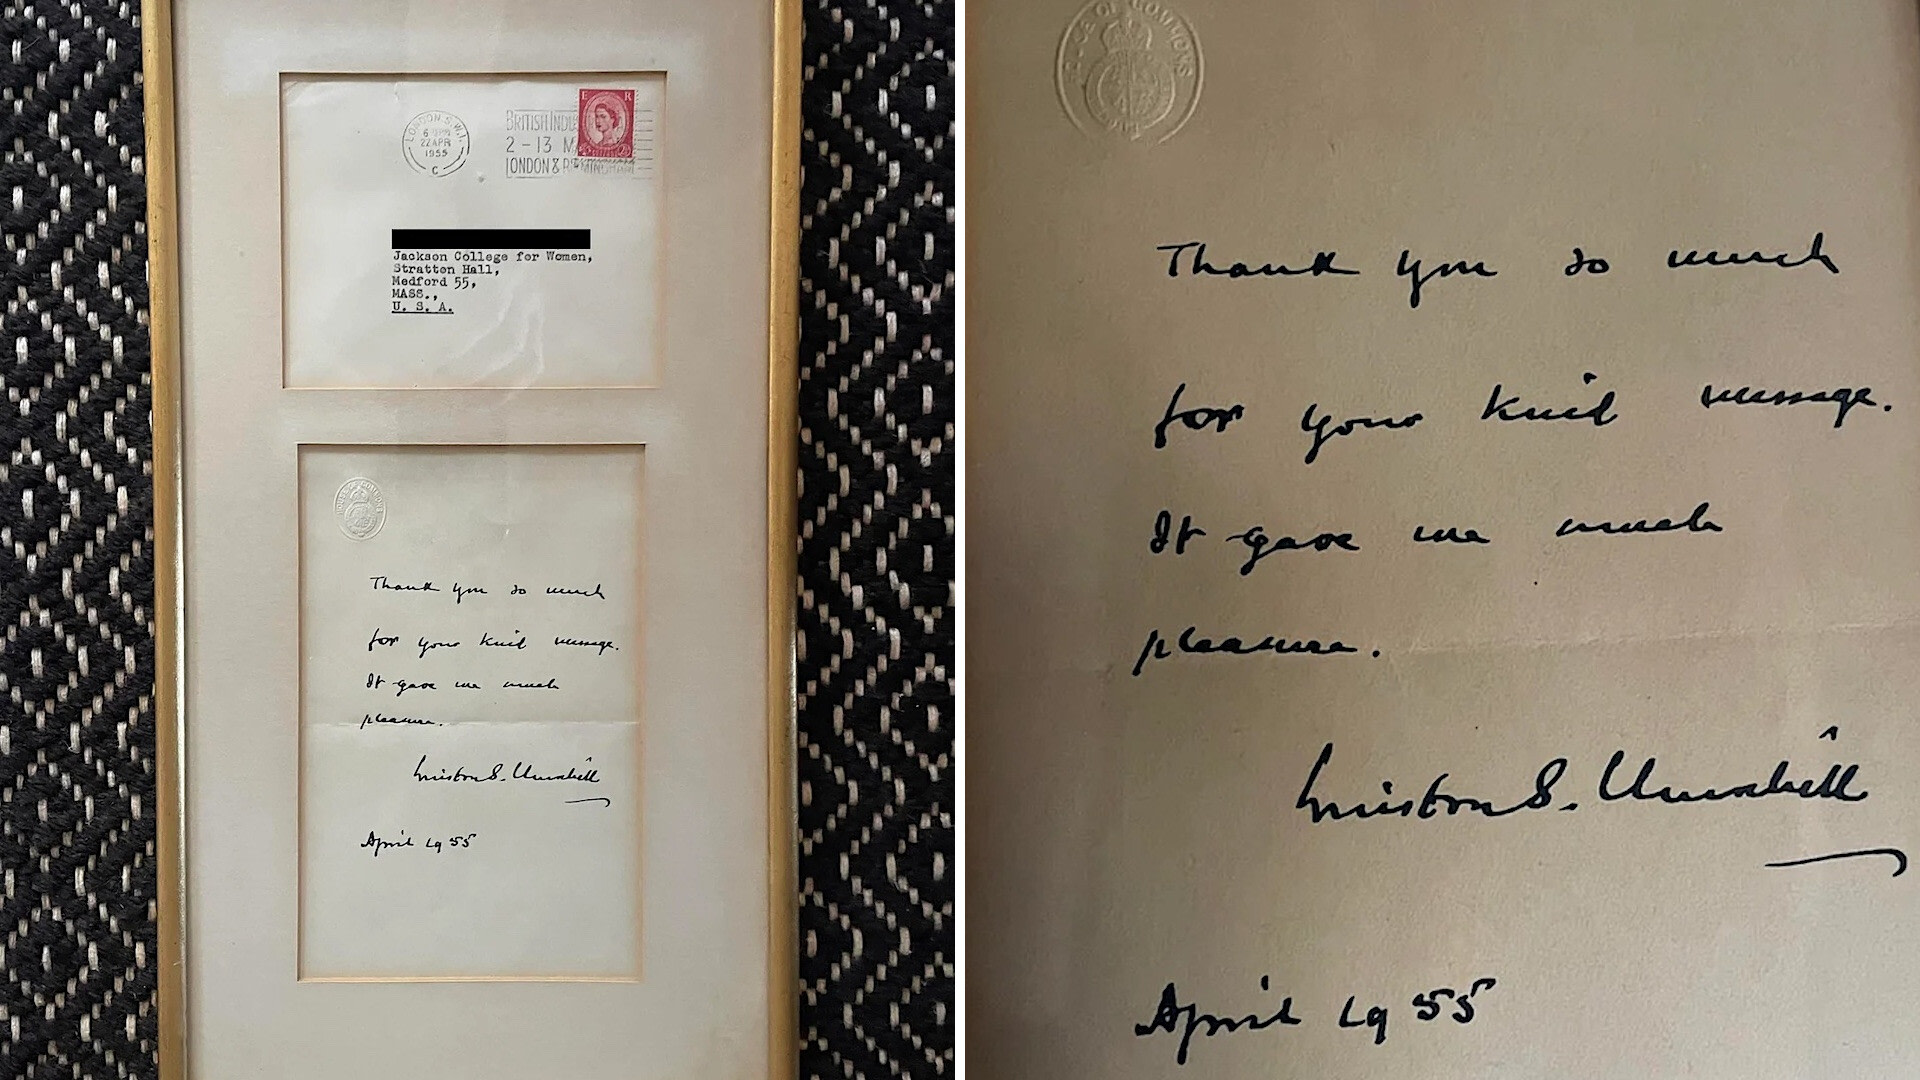 LONDON S.W.1.
22 APR
1955
C
BRITISH
2 - 13
LONDON & BIRMINGHAM
E R
Jackson College for Women,
Stratton Hall,
Medford 55,
MASS.,
U. S. A.
HOUSE OF COMMONS
Thank you so much
for your kind message.
It gave me much
pleasure.
Winston S. Churchill
April 1955
HOUSE OF COMMONS
Thank you so much
for your kind message.
It gave me much
pleasure.
Winston S. Churchill
April 1955